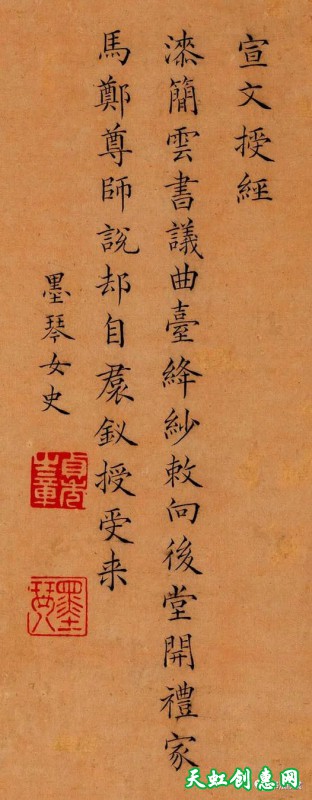 宣文授經
漆簡雲書議曲臺絳紗敕向後堂開禮家
馬鄭尊師說却自裠釵授受来
墨琴女史
貞秀之章
墨琴
天虹创惠网